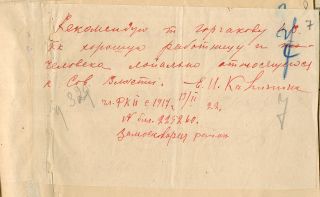 Рекомендую т. Горчакову
как хорошую работницу и
человека лояльно относящуюся
к Сов. Власти. — Е. И.
чл. РКП с 1917 17/II 22.
N бил. 225260.
Замоскворец район
7